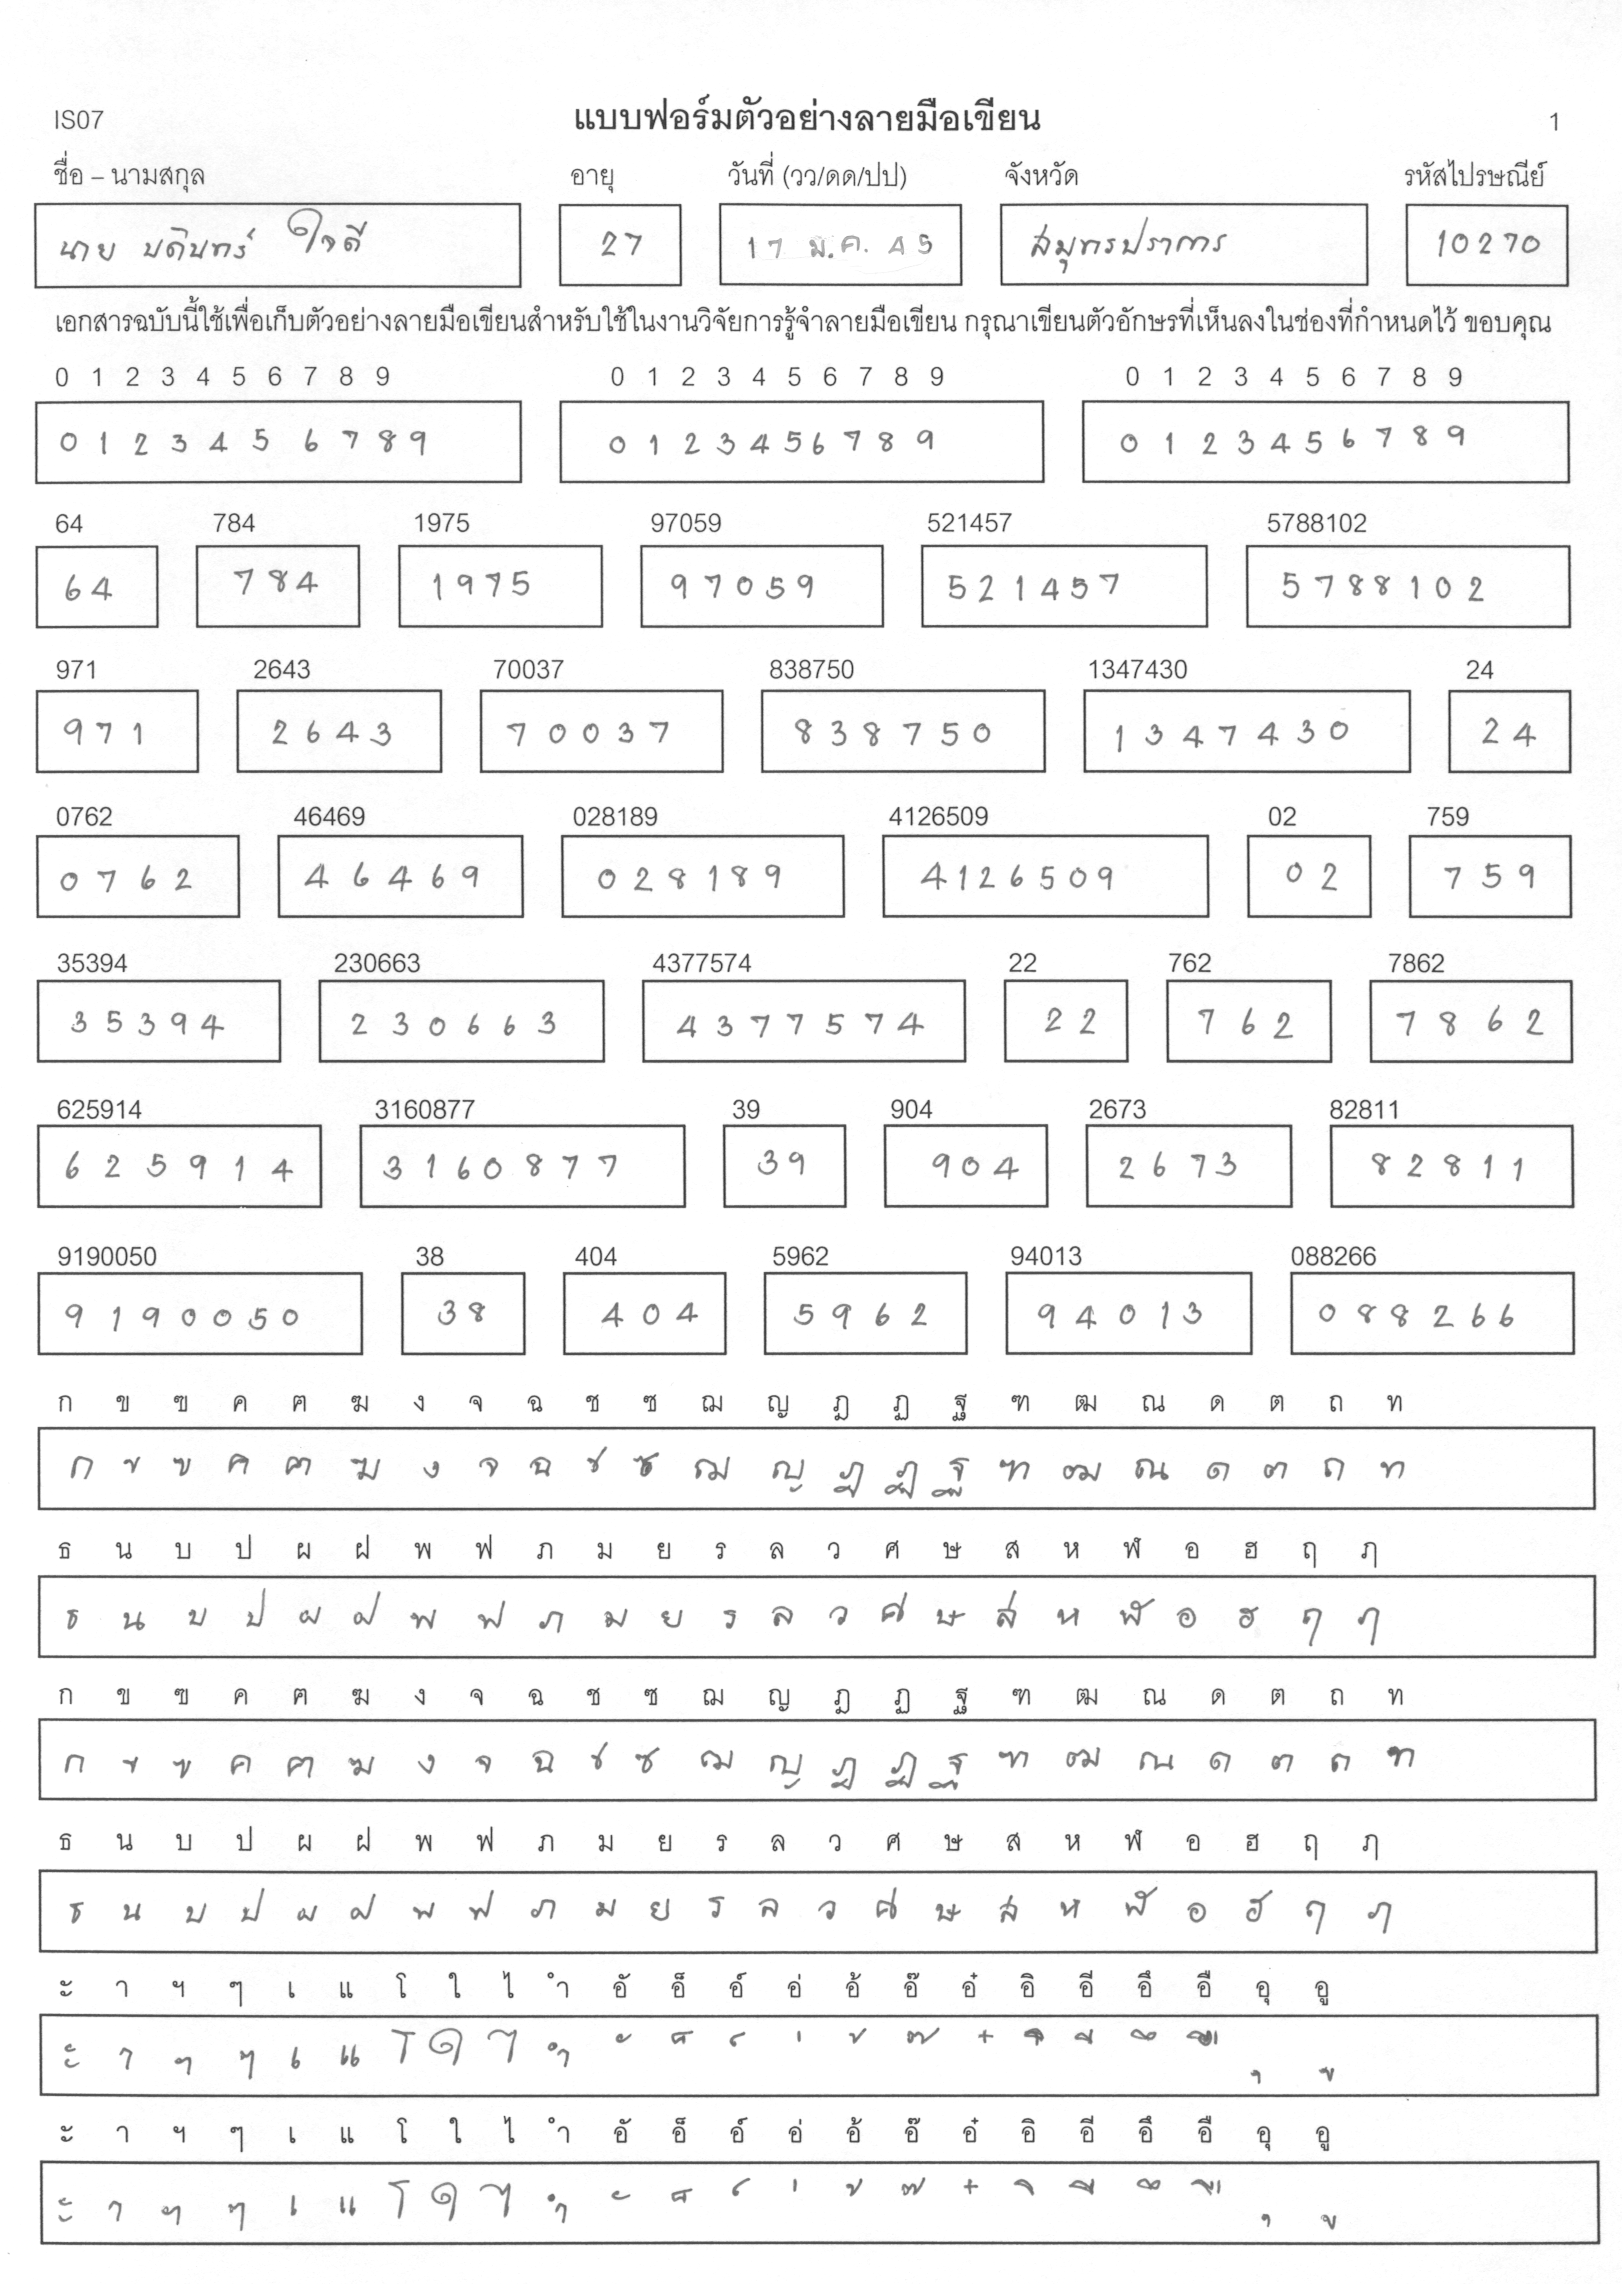 IS07 แบบฟอร์มตัวอย่างลายมือเขียน 1
ชื่อ – นามสกุล อายุ วันที่ (วว/ดด/ปป) จังหวัด รหัสไปรษณีย์
นาย บดินทร์ ใจดี 27 17 มี.ค. 45 สมุทรปราการ 10270
เอกสารฉบับนี้ใช้เพื่อเก็บตัวอย่างลายมือเขียนสำหรับใช้ในงานวิจัยการรู้จำลายมือเขียน กรุณาเขียนตัวอักษรที่เห็นลงในช่องที่กำหนดไว้ ขอบคุณ
0 1 2 3 4 5 6 7 8 9 0 1 2 3 4 5 6 7 8 9 0 1 2 3 4 5 6 7 8 9
0 1 2 3 4 5 6 7 8 9 0 1 2 3 4 5 6 7 8 9 0 1 2 3 4 5 6 7 8 9
64 784 1975 97059 521457 5788102
64 784 1975 97059 521457 5788102
971 2643 70037 838750 1347430 24
971 2643 70037 838750 1347430 24
0762 46469 028189 4126509 02 759
0762 46469 028189 4126509 02 759
35394 230663 4377574 22 762 7862
35394 230663 4377574 22 762 7862
625914 3160877 39 904 2673 82811
625914 3160877 39 904 2673 82811
9190050 38 404 5962 94013 088266
9190050 38 404 5962 94013 088266
ก ข ฃ ค ฅ ฆ ง จ ฉ ช ซ ฌ ญ ฎ ฏ ฐ ฑ ฒ ณ ด ต ถ ท
ก ข ฃ ค ฅ ฆ ง จ ฉ ช ซ ฌ ญ ฎ ฏ ฐ ฑ ฒ ณ ด ต ถ ท
ธ น บ ป ผ ฝ พ ฟ ภ ม ย ร ล ว ศ ษ ส ห ฬ อ ฮ ฤ ฦ
ธ น บ ป ผ ฝ พ ฟ ภ ม ย ร ล ว ศ ษ ส ห ฬ อ ฮ ฤ ฦ
ก ข ฃ ค ฅ ฆ ง จ ฉ ช ซ ฌ ญ ฎ ฏ ฐ ฑ ฒ ณ ด ต ถ ท
ก ข ฃ ค ฅ ฆ ง จ ฉ ช ซ ฌ ญ ฎ ฏ ฐ ฑ ฒ ณ ด ต ถ ท
ธ น บ ป ผ ฝ พ ฟ ภ ม ย ร ล ว ศ ษ ส ห ฬ อ ฮ ฤ ฦ
ธ น บ ป ผ ฝ พ ฟ ภ ม ย ร ล ว ศ ษ ส ห ฬ อ ฮ ฤ ฦ
ะ า ฯ ๆ เ แ โ ใ ไ ำ อั อ็ อ์ อ่ อ้ อ๊ อ๋ อิ อี อึ อื อุ อู
ะ า ฯ ๆ เ แ โ ใ ไ ำ ั ็ ์ ่ ้ ๊ ๋ ิ ี ึ ื ุ ู
ะ า ฯ ๆ เ แ โ ใ ไ ำ อั อ็ อ์ อ่ อ้ อ๊ อ๋ อิ อี อึ อื อุ อู
ะ า ฯ ๆ เ แ โ ใ ไ ำ ั ็ ์ ่ ้ ๊ ๋ ิ ี ึ ื ุ ู